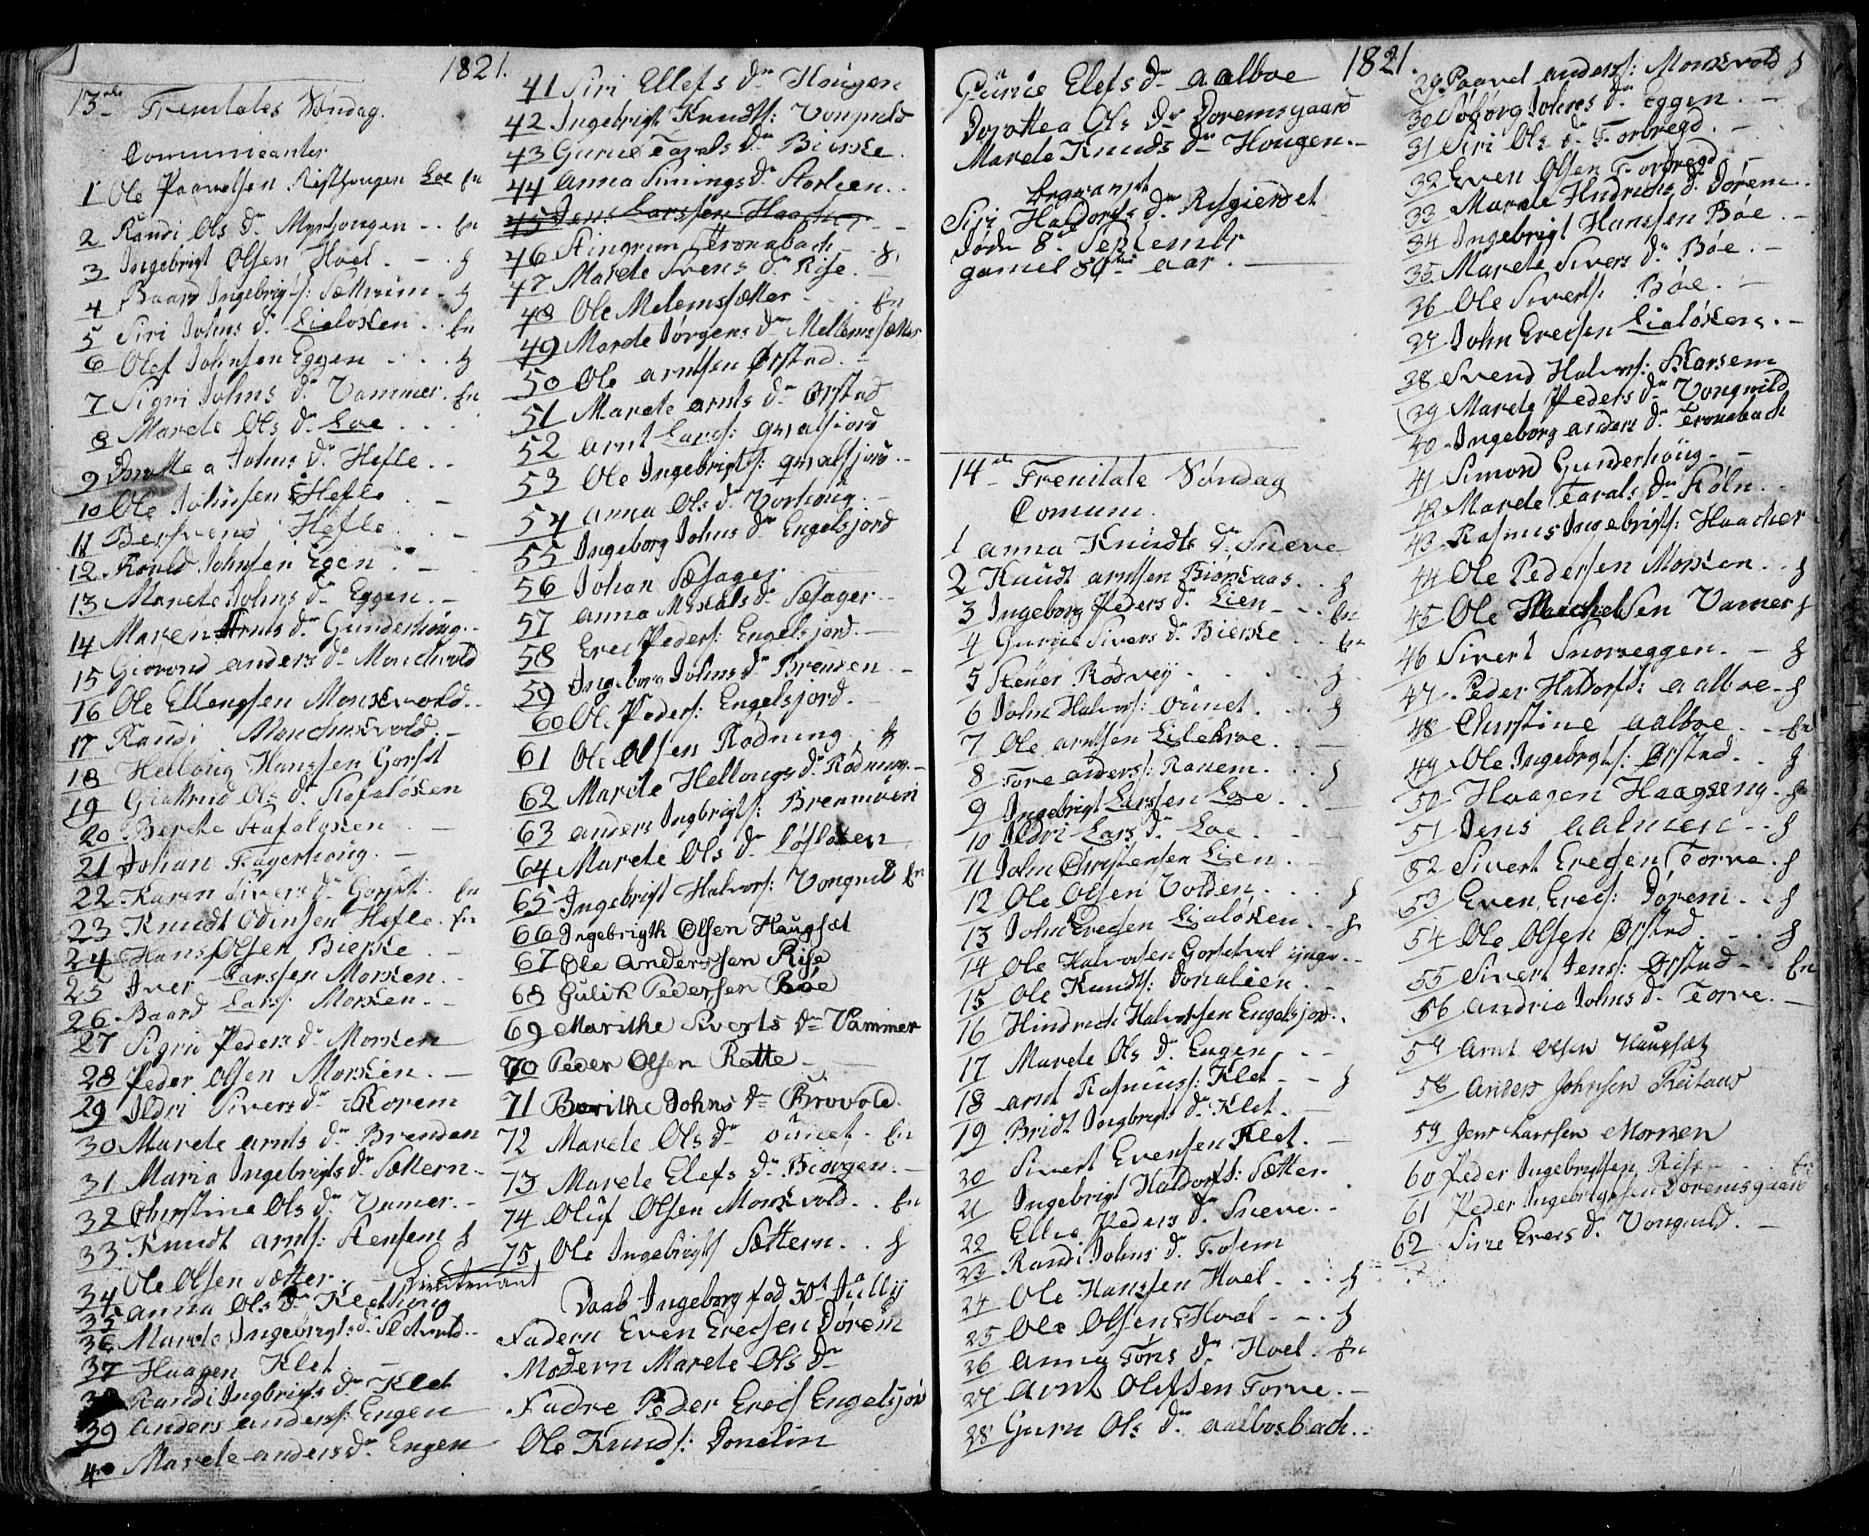 1821.
13de Trenitates Søndag.
Comunicanter
1 Ole Paavelsen Risthougen Loe En
2 Randi Ols Dr Myrhougen - - En
3 Ingebrigt Olsen Hoel. - . g
4 Baard Ingebrigts: Sætterim - g
5 Siri Johns Dr. Lialøkken . . En
6 Olef Johnsen Eggen . . . g
7 Sigri Johns Dr Vammer . En
8 Marete Ols Dr Loe . . .
9 Johns Dr. Hefle . .
10 Ole Johnsen Hefle . -
11 Bersvend Hefle . -
12 Johnsen Egen . -
13 Marete Johns Dr Eggen . -
14 Maren Arnts Dr Gunderhoug. -
15 Giøvord anders Dr Monckvold
16 Ole Ellengsen Monskvold. -
17 Randi Monchskvold. -
18 Helloug Hanssen Gorset
19 Giertrud Ols Dr Stafaløkken
20 Berthe Stafaloken . -
21 Johan Fagerhoug. -
22 Karen Sivers Dr Gorset. En
23 Knudt Odinsen Hefle . En
24 Hans Olsen Bierke . -
25 Iver Larssen Morken. -
26 Baard Lars: Morken. -
27 Sigri Peders Dr Morken
28 Peder Olsen Morken. -
29 Ildri Sivers Dr Korem
30 Marete arnts Dr Brenden
31 Maria Ingebrigts Dr Sættern -
32 Christine Ols Dr Vamer. -
33 Knudt arnts: Stensem g
34 Ole Olsen Sætter. Lieutenant
35 anna Ols Dr Klethoug
36 Marete Ingebrigts Dr
37 Haagen Klet. -
38 Randi Ingbrigts Dr Klet
39 anders anders: Engen
40 Marete anders Dr. Engen
41 Siri Ellefs Dr Hougen
42 Ingebrigt Knudts: Vongvild
43 Gurue Tarals Dr Bierke.
44 anna Simings Dr Storlien. .
45 Jens Larssen Haashoug -
46 Stingrim Tronabach - g
47 Marete Svens Dr Rise . -
48 Ole Melemssætter - . . En
49 Marete Jørgens Dr Mellemsætter
50 Ole arntsen Ørstad. -
51 Marete arnts Dr Ørstad
52 arnt Lars: qvalsiord
53 Ole Ingebrigts: qvalsjord -
54 anna Ols Dr Vorhoug. -
55 Ingeborg Johns Dr Engelsjord
56 Johan Sæsager. -
57 anna Mikals Dr Sæsager. -
58 Erec Peders: Engelsjord. -
59 Ingeborg Johns Dr Brenden -
60 Ole Peders: Engelsjord. -
61 Ole Olsen Rødning . . g
62 Marete Hellougs Dr Rødning. -
63 anders Ingbrigts: Brenmoen
64 Marete Ols Dr Løsløken
65 Ingebrigt Halvors: Vongvild En
66 Ingebrigth Olsen Haugsæt
67 Ole Anderssen Rise
68 Gulik Pedersen Bøe
69 Marithe Siverts Dr Vammer
70 Peder Olsen Rette -
71 Berithe Johns Dr Brovold.
72 Marete Ols Dr ouneet. En
73 Marete Elefs Dr Biørgen. -
74 Oluf Olsen Monskvold. . En
75 Ole Ingebrigts Sættern. . g
Daab Ingeborg fød 30t Jullij
Fadern Even Erecsen Dørem
Modern Marete Ols Dr
Fadre Peder Erecs Engelsjord
Ole Knuds: Donelin
1821.
Gurue Elefs Dr aalboe
Dorothea Ols Dr Doremsgaard
Marete Knuds Dr Hougen. -
Begravet
Siri Haldors Dr Risgierdet
døde 8de September
gamel 80 aar. -
14de Trenitate Søndag
Comun.
1 anna Knudts Dr Sneve
2 Knudt arntsen Biorkaas. . g
3 Ingeborg Peders Dr Lien - . En
4 Gurue Sivers Dr Bierke . . En
5 Stener Rødvey . . . . g
6 John Halvors: ounet. . . g
7 Ole arntsen Lilekroe. . -
8 Tore anders: Ranem. . . g
9 Ingebrigt Larssen Loe . . -
10 Ildri Lars Dr Loe . - -
11 John Christensen Lien. -
12 Ole Olsen Volden . . . g
13 John Erecsen Lialøken. . g
14 Ole Halvorsen Gorsetral ijngr. -
15 Ole Knudts: Donalien. -
16 Hindrich Halvorsen Engelsjord. .
17 Marete Ols Dr Eugen . -
18 arnt Rasmus: Klet - - g
19 Bridt Ingbrigts Dr Klet. -
20 Sivert Evensen Klet. -
21 Ingebrigt Haldors: Sætter.
22 Ellie Peders Dr Sneve. -
23 Randi Johns Dr Fosem
24 Ole Hanssen Hoel - . . g
25 Ole Olsen Hoel - . . g
26 anna Tørs Dr Hoel. En
27 Arnt Olefsen Torve. -
28 Guru Ols Dr aalbosbach. .
29 Paavel anders: Monskvold g
30 Søborg Johnes Dr Eggen. -
31 Siri Ols Dr Forbregd. -
32 Even Olsen Forbregd -
33 Marete Hindrichs Dr Dørem.
34 Ingebrigt Hanssen Bøe. -
35 Marete Sivers Dr Bøe. -
36 Ole Siverts: Bøe. -
37 John Erecsen Lialøken. -
38 Svend Halvors: Skorsem
39 Marete Peders Dr Vongvild
40 Ingeborg anders Dr Tronabach
41 Simon Gunderhoug. -
42 Marete Tarals Dr Røln. -
43 Rasmus Ingebrigts: Haacker
44 Ole Pedersen Morken. . g
45 Ole Michelsen Vamer g
46 Sivert Snoreggen. - g
47 Peder Haldors: aalboe - g
48 Christine aalboe. . . En
49 Ole Ingebrgts: Ørstad. . g
50 Haagen Haagseng. g
51 Jens aalmen. . g
52 Sivert Erecsen Torve. g
53 Even Erecs: Dørem. . g
54 Ole Olsen Ørstad. . . g
55 Sivert Jens: Ørstad - . En
56 andria Johns Dr Torve. -
57 Arnt Olsen Haugsæt
58 Anders Johnsen
59 Jens Larssen Morken
60 Peder Ingebrigtsen Rise - . . En
61 Peder Ingebrigtsen Doremsgaard
62 Sirre Erecs Dr Vongvild. -